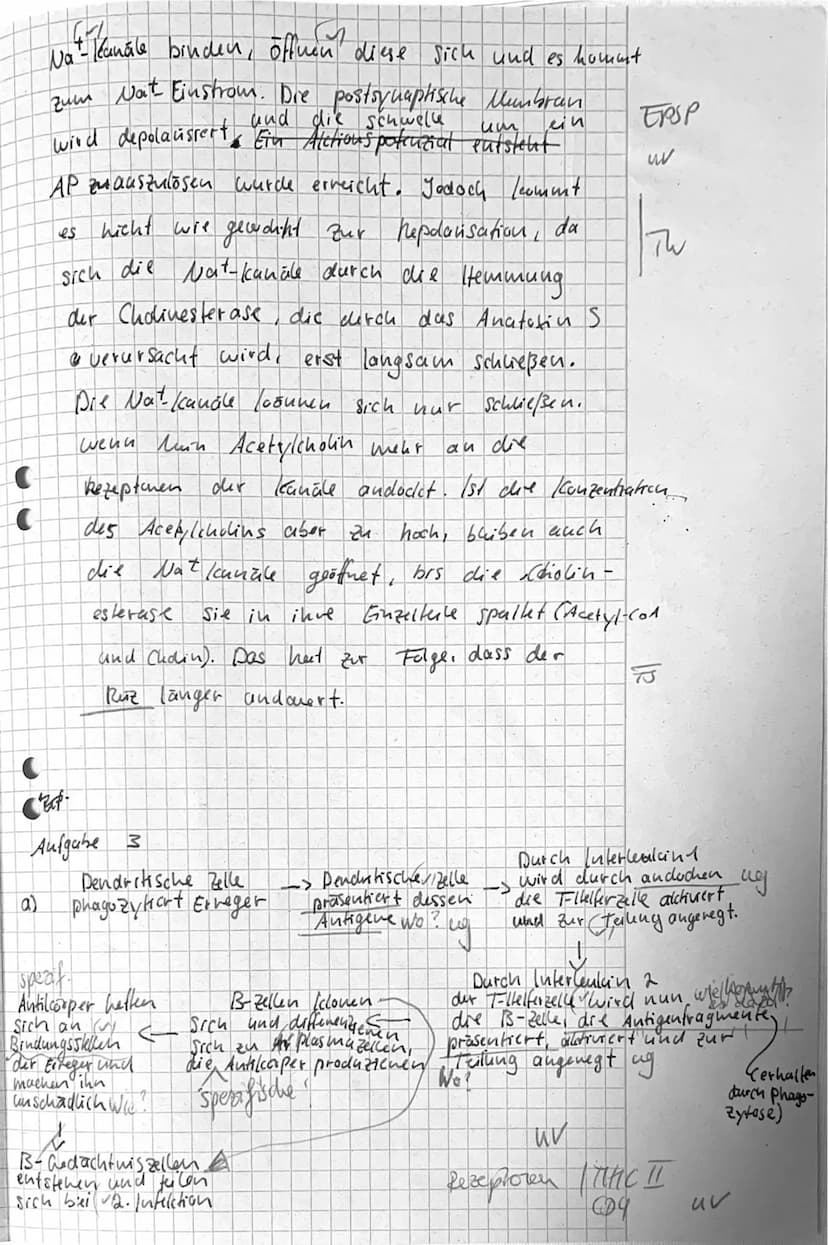 Na⁺-Kanäle binden, öffnen diese sich und es kommt
zum Na⁺ Einstrom. Die postsynaptische Membran
EPSP
und die schwelle um ein
wird depolarisiert. Ein Aktionspotenzial entsteht
uv
AP auszulösen wurde erreicht. Jedoch kommt
es nicht wie gewohnt zur Repolarisation, da
sich die Na⁺-Kanäle durch die Hemmung
der Cholinesterase, die durch das Anatoxin S
verursacht wird, erst langsam schließen.
Die Na⁺-Kanäle können sich nur schließen.
wenn kein Acetylcholin mehr an die
Rezeptoren der Kanäle andockt. Ist die Konzentration
des Acetylcholins aber zu hoch, bleiben auch
die Na⁺ Kanäle geöffnet, bis die Cholin-
esterase sie in ihre Einzelteile spaltet (Acetyl-CoA
und Cholin). Das hat zur Folge, dass der
TS
Reiz länger andauert.
Aufgabe 3
a)
Dendritische Zelle
phagozytiert Erreger
-> Dendritische Zelle
präsentiert dessen
Antigene Wo? ug
-> Durch Interleukin 1
wird durch andocken ug
die T-Helferzelle aktiviert
und zur Teilung angeregt.
Durch Interleukin 2
der T-Helferzelle wird nun wie kommt es dazu?
die B-Zelle, die Antigenfragmente
präsentiert, aktiviert und zur
Teilung angeregt ug
Wo?
(erhalten
durch Phago-
zytose)
B-Zellen klonen
sich und differenzieren
sich zu Plasmazellen,
die Antikörper produzieren
spezifische!
spezif.
Antikörper heften
sich an
Bindungsstellen
der Erreger und
machen ihn
unschädlich Wie?
B-Gedächtniszellen
entstehen und teilen
sich bei 2. Infektion
uv
Rezeptoren / MHC II
CD4 uv